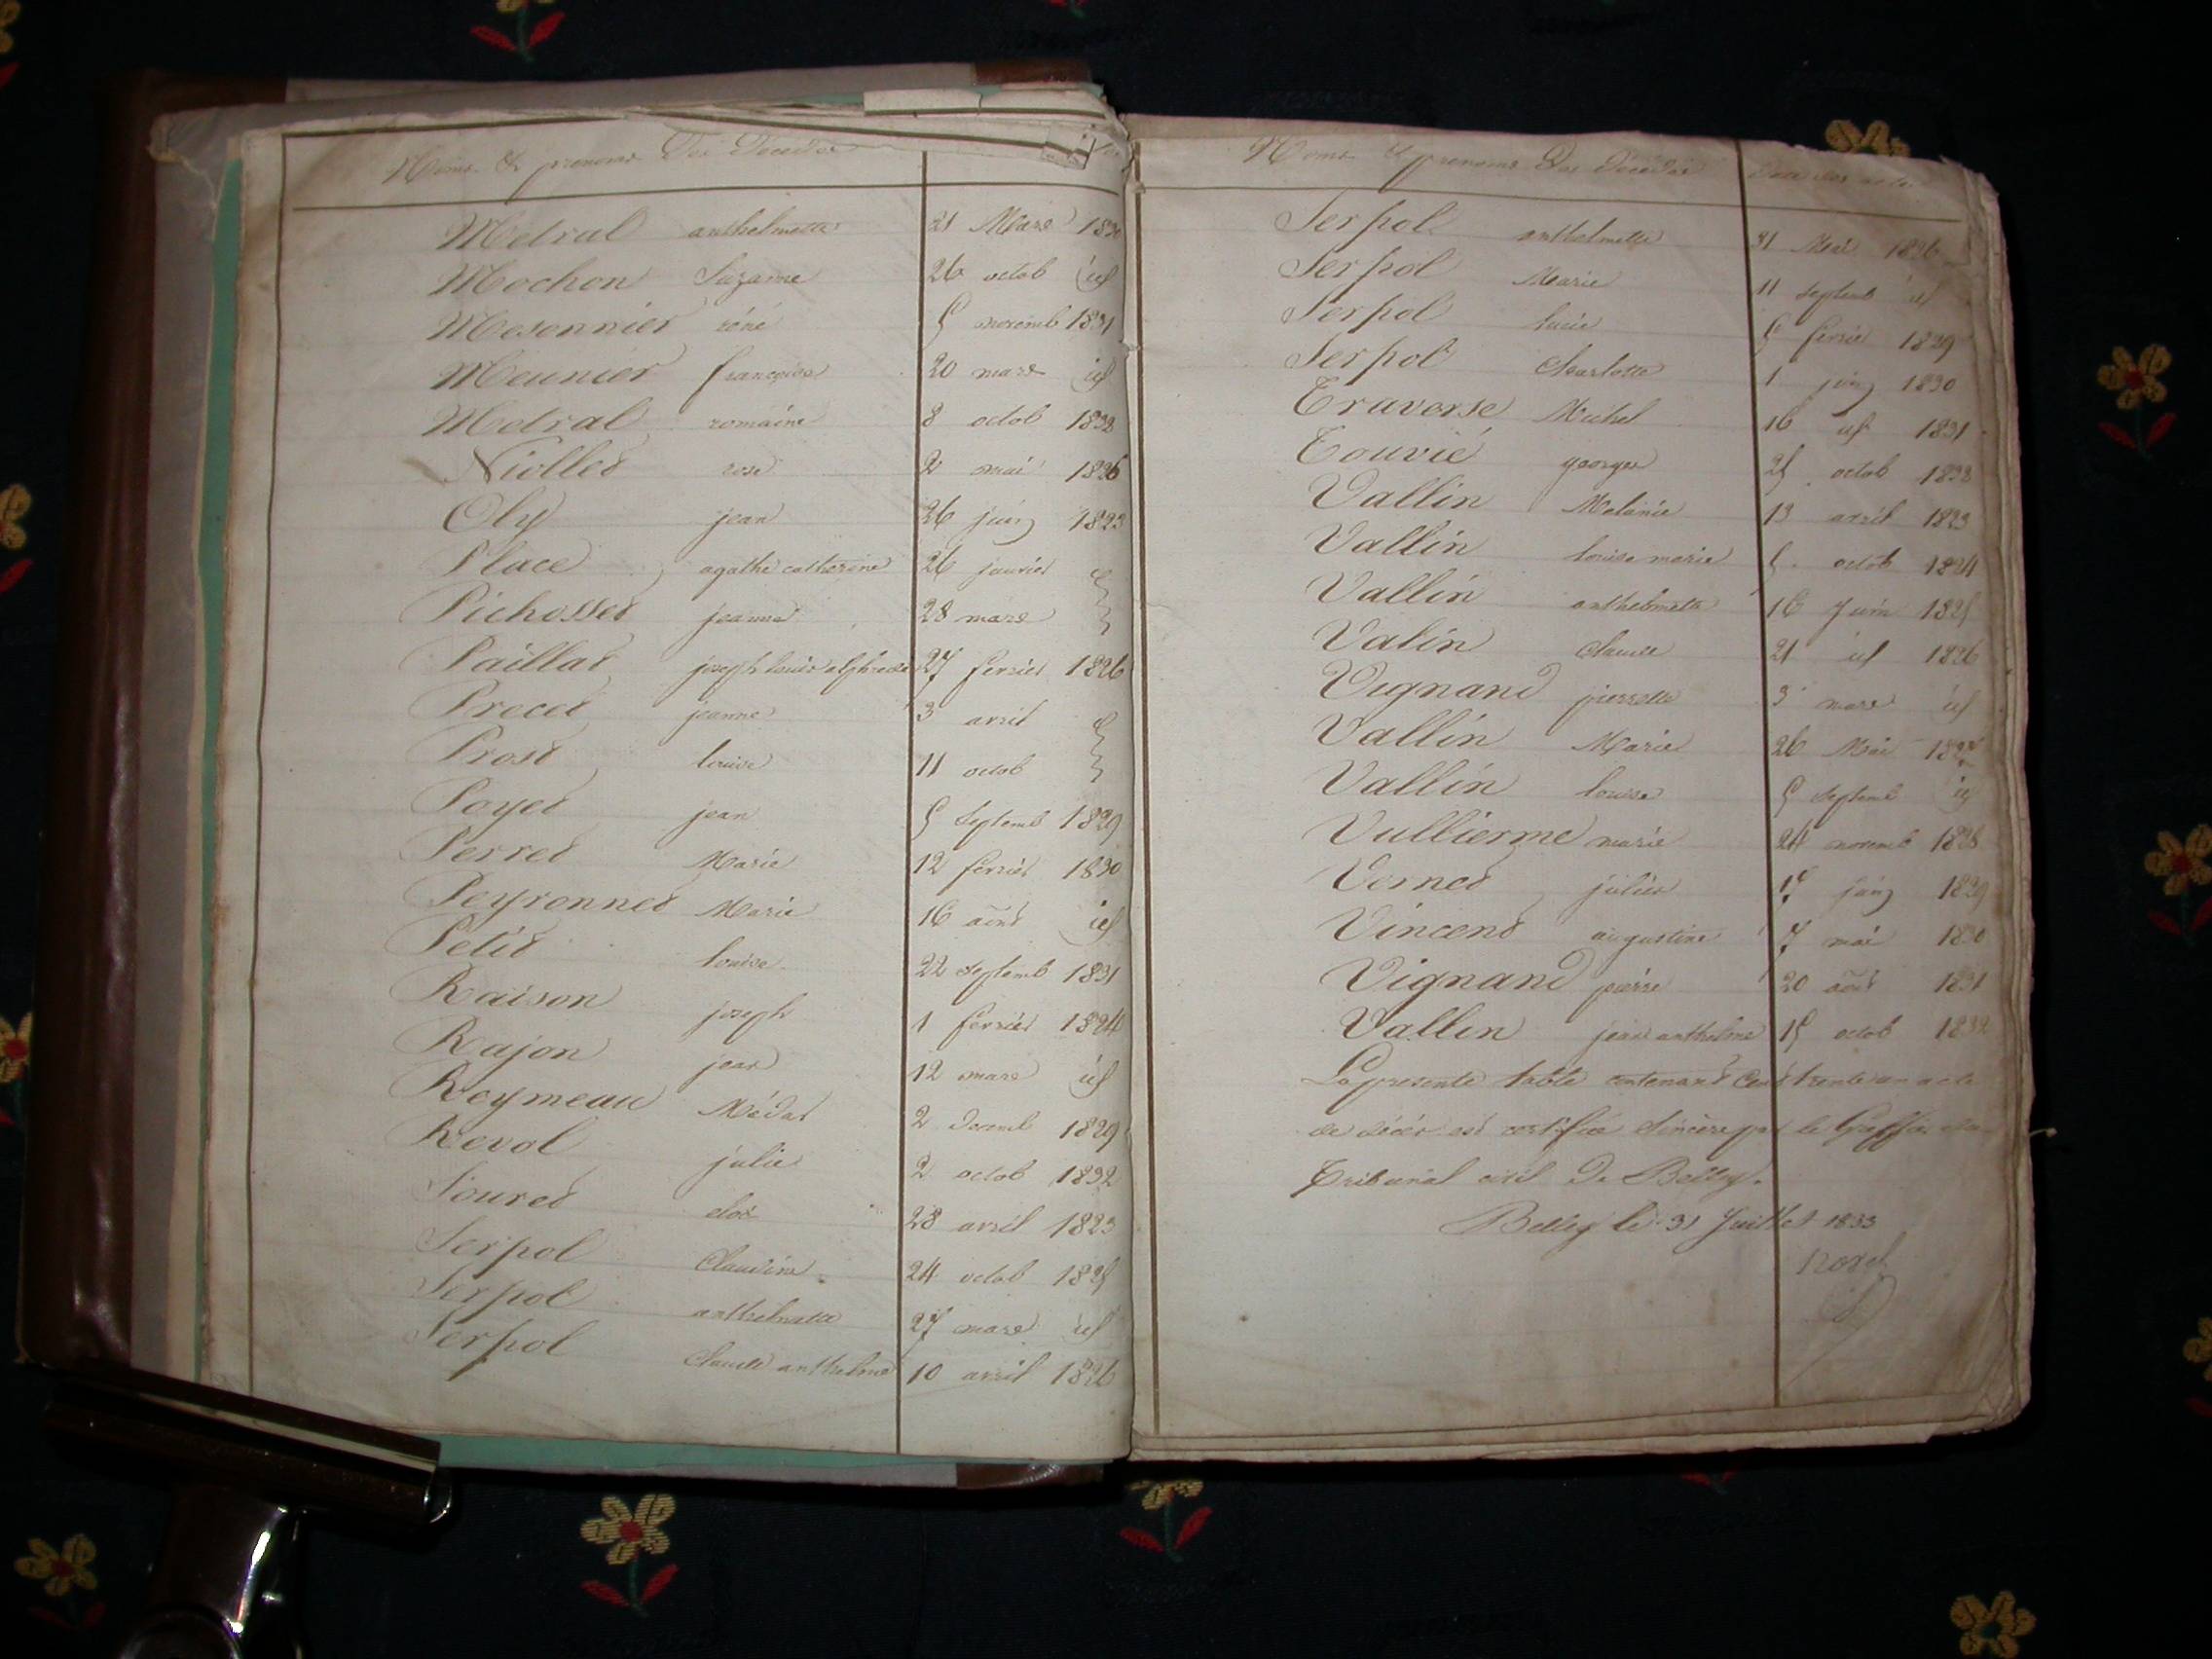 Noms & prenoms Des Decedes
Metral anthelmette 21 Mars 1830
Mochon Suzanne 26 octob id
Mesonnier réné 5 novemb 1831
Meunier françoise 20 mars id
Metral romaine 8 octob 1832
Niollet rose 2 mai 1826
Oly jean 26 juin 1823
Place agathe catherine 26 janvier
Pichosset jeanne 28 mars
Paillat joseph louis 27 fevrier 1826
Precet jeanne 3 avril
Prost louise 11 octob
Poyet jean 5 Septemb 1829
Perret Marie 12 fevrier 1830
Peyronnet Marie 16 août id
Petit louise 22 septemb 1831
Raison joseph 1 fevrier 1824
Rajon jean 12 mars id
Reymeau Médard 2 Decemb 1829
Revol julie 2 octob 1832
Souret 28 avril 1823
Serpol Claudine 24 octob 1825
Serpol anthelmette 27 mars id
Serpol Claude anthelme 10 avril 1826
Noms & prenoms Des Décédés Date des actes
Serpol anthelmette 31 Mai 1826
Serpol Marie 11 septemb id
Serpol lucie 5 fevrier 1829
Serpol Charlotte 1 juin 1830
Traverse Michel 16 id 1831
Touvié georges 25 octob 1832
Vallin Melanie 13 avril 1823
Vallin louise marie 5 octob 1824
Vallin anthelmette 16 Juin 1825
Valin Claude 21 id 1826
Vignand pierrette 3 mars id
Vallin Marie 26 Mai
Vallin louise 5 Septemb id
Vullierme marie 24 novemb 1828
Vernet julien juin 1829
Vincent augustine 7 mai 1830
Vignand pierre 20 août 1831
Vallin jean anthelme 15 octob 1832
La presente table contenant Cent trente un acte
de décès est certifiée Sincère par le Greffier du
Tribunal civil De Belley.
Belley le 31 Juillet 1833